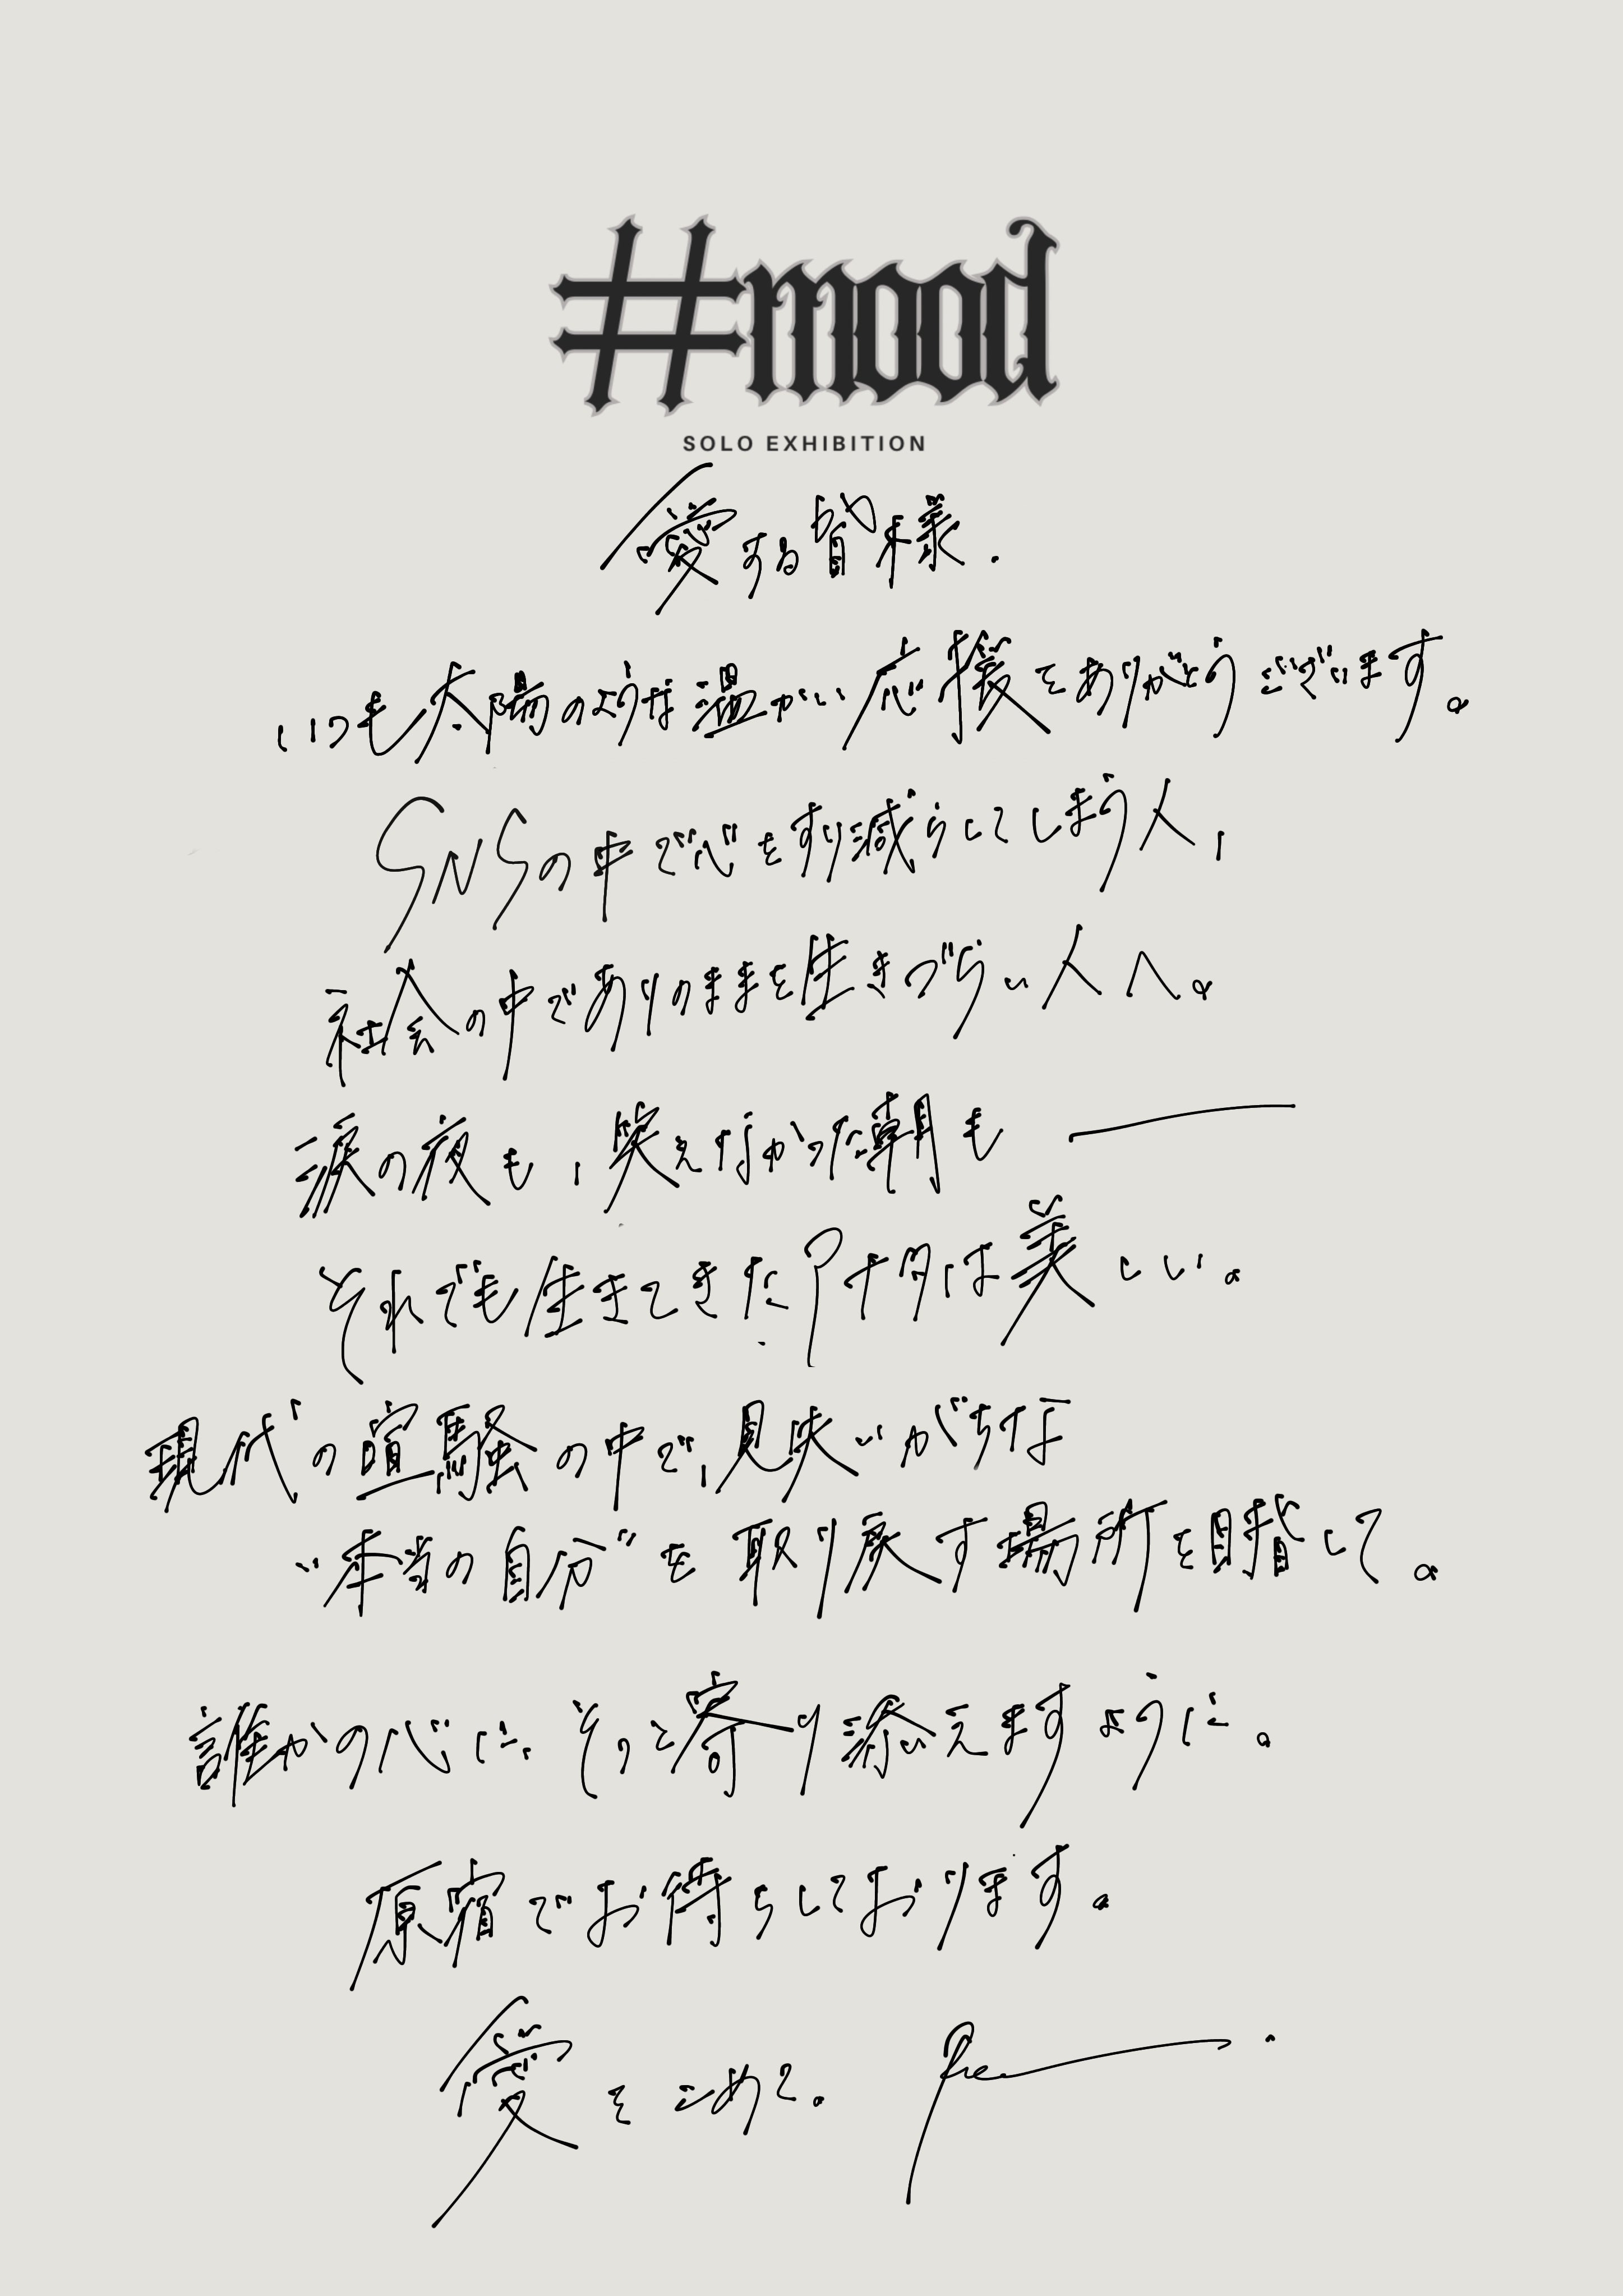 #mood
SOLO EXHIBITION
愛する皆様.
いつも太陽のような温かい応援をありがとうございます。
SNSの中で心をすり減らしてしまう人,
社会の中でありのままを生きづらい人へ。
涙の夜も,笑えなかった朝も ——
それでも生きてきたアナタは美しい。
現代の喧騒の中で,見失いがちな
"本当の自分"を取り戻す場所を目指して。
誰かの心に、そっと寄り添えますように。
原宿でお待ちしております。
愛をこめて。